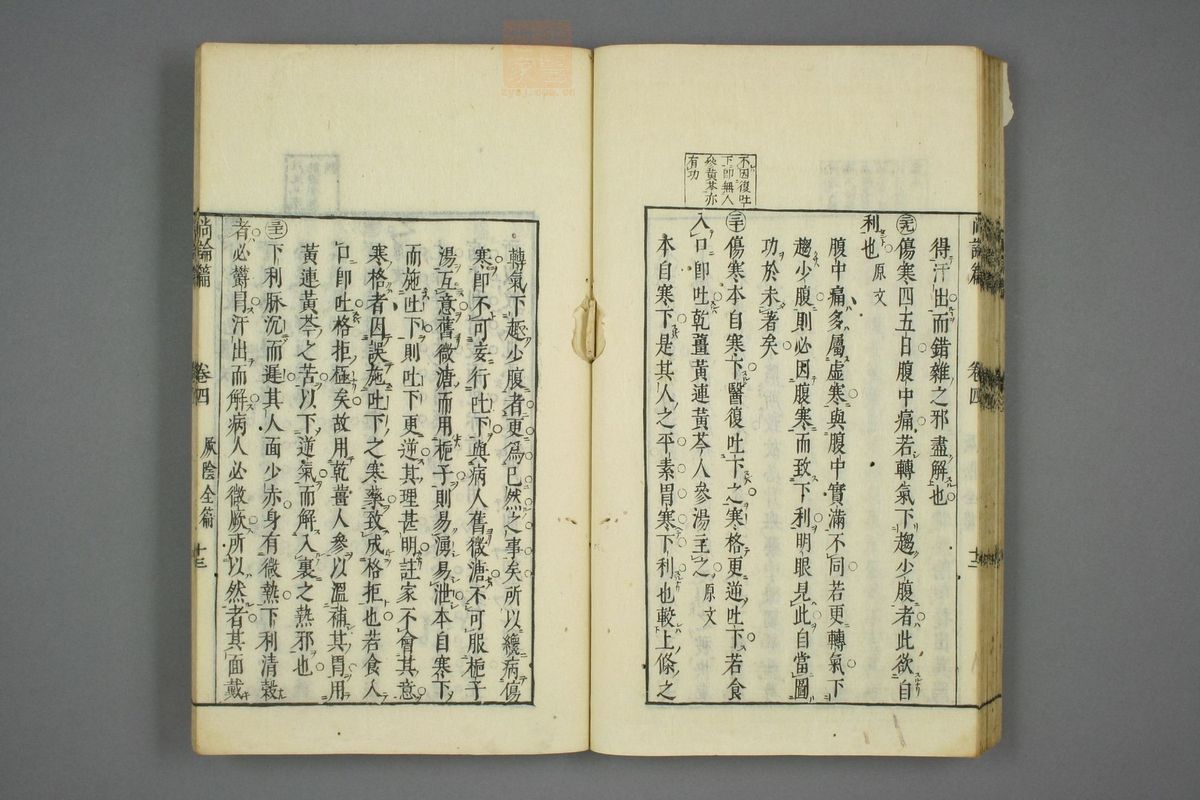 不因復吐
下卽無人
參黃芩亦
有功
尚論篇
卷四
十二
得汗出而錯雜之邪盡解也
傷寒四五日腹中痛若轉氣下趨少腹者此欲自
利也 原文
腹中痛多屬虛寒與腹中實滿不同若更轉氣下
趨少腹則必因腹寒而致下利明眼見此自當圖
功於未著矣
三十傷寒本自寒下醫復吐下之寒格更逆吐下若食
入口卽吐乾薑黃連黃芩人參湯主之 原文
本自寒下是其人之平素胃寒下利也較上條之
轉氣下趨少腹者更爲已然之事矣所以纔病傷
寒卽不可妄行吐下與病人舊微溏不可服梔子
湯互意舊微溏而用梔子則易湧易泄本自寒下
而施吐下則吐下更逆其理甚明註家不會其意
寒格者因誤施吐下之寒藥致成格拒也若食入
口卽吐格拒極矣故用乾薑人參以溫補其胃用
黃連黃芩之苦以下逆氣而解入裏之熱邪也
下利脉沉而遲其人面少赤身有微熱下利清穀
者必鬱冒汗出而解病人必微厥所以然者其面戴
尚論篇
卷四
厥陰全篇
十三